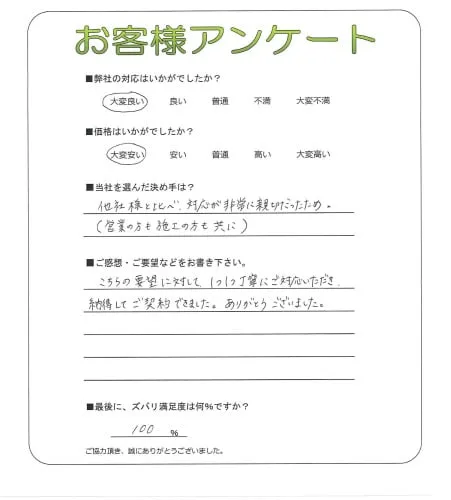 お客様アンケート
■弊社の対応はいかがでしたか?
大変良い 良い 普通 不満 大変不満
■価格はいかがでしたか?
大変安い 安い 普通 高い 大変高い
■当社を選んだ決め手は?
他社様と比べ、対応が非常に親切だったため。
(営業の方も施工の方も共に)
■ご感想・ご要望などをお書き下さい。
こちらの要望に対して、1つ1つ丁寧にご対応いただき、
納得してご契約できました。ありがとうございました。
■最後に、ズバリ満足度は何%ですか?
100 %
ご協力頂き、誠にありがとうございました。